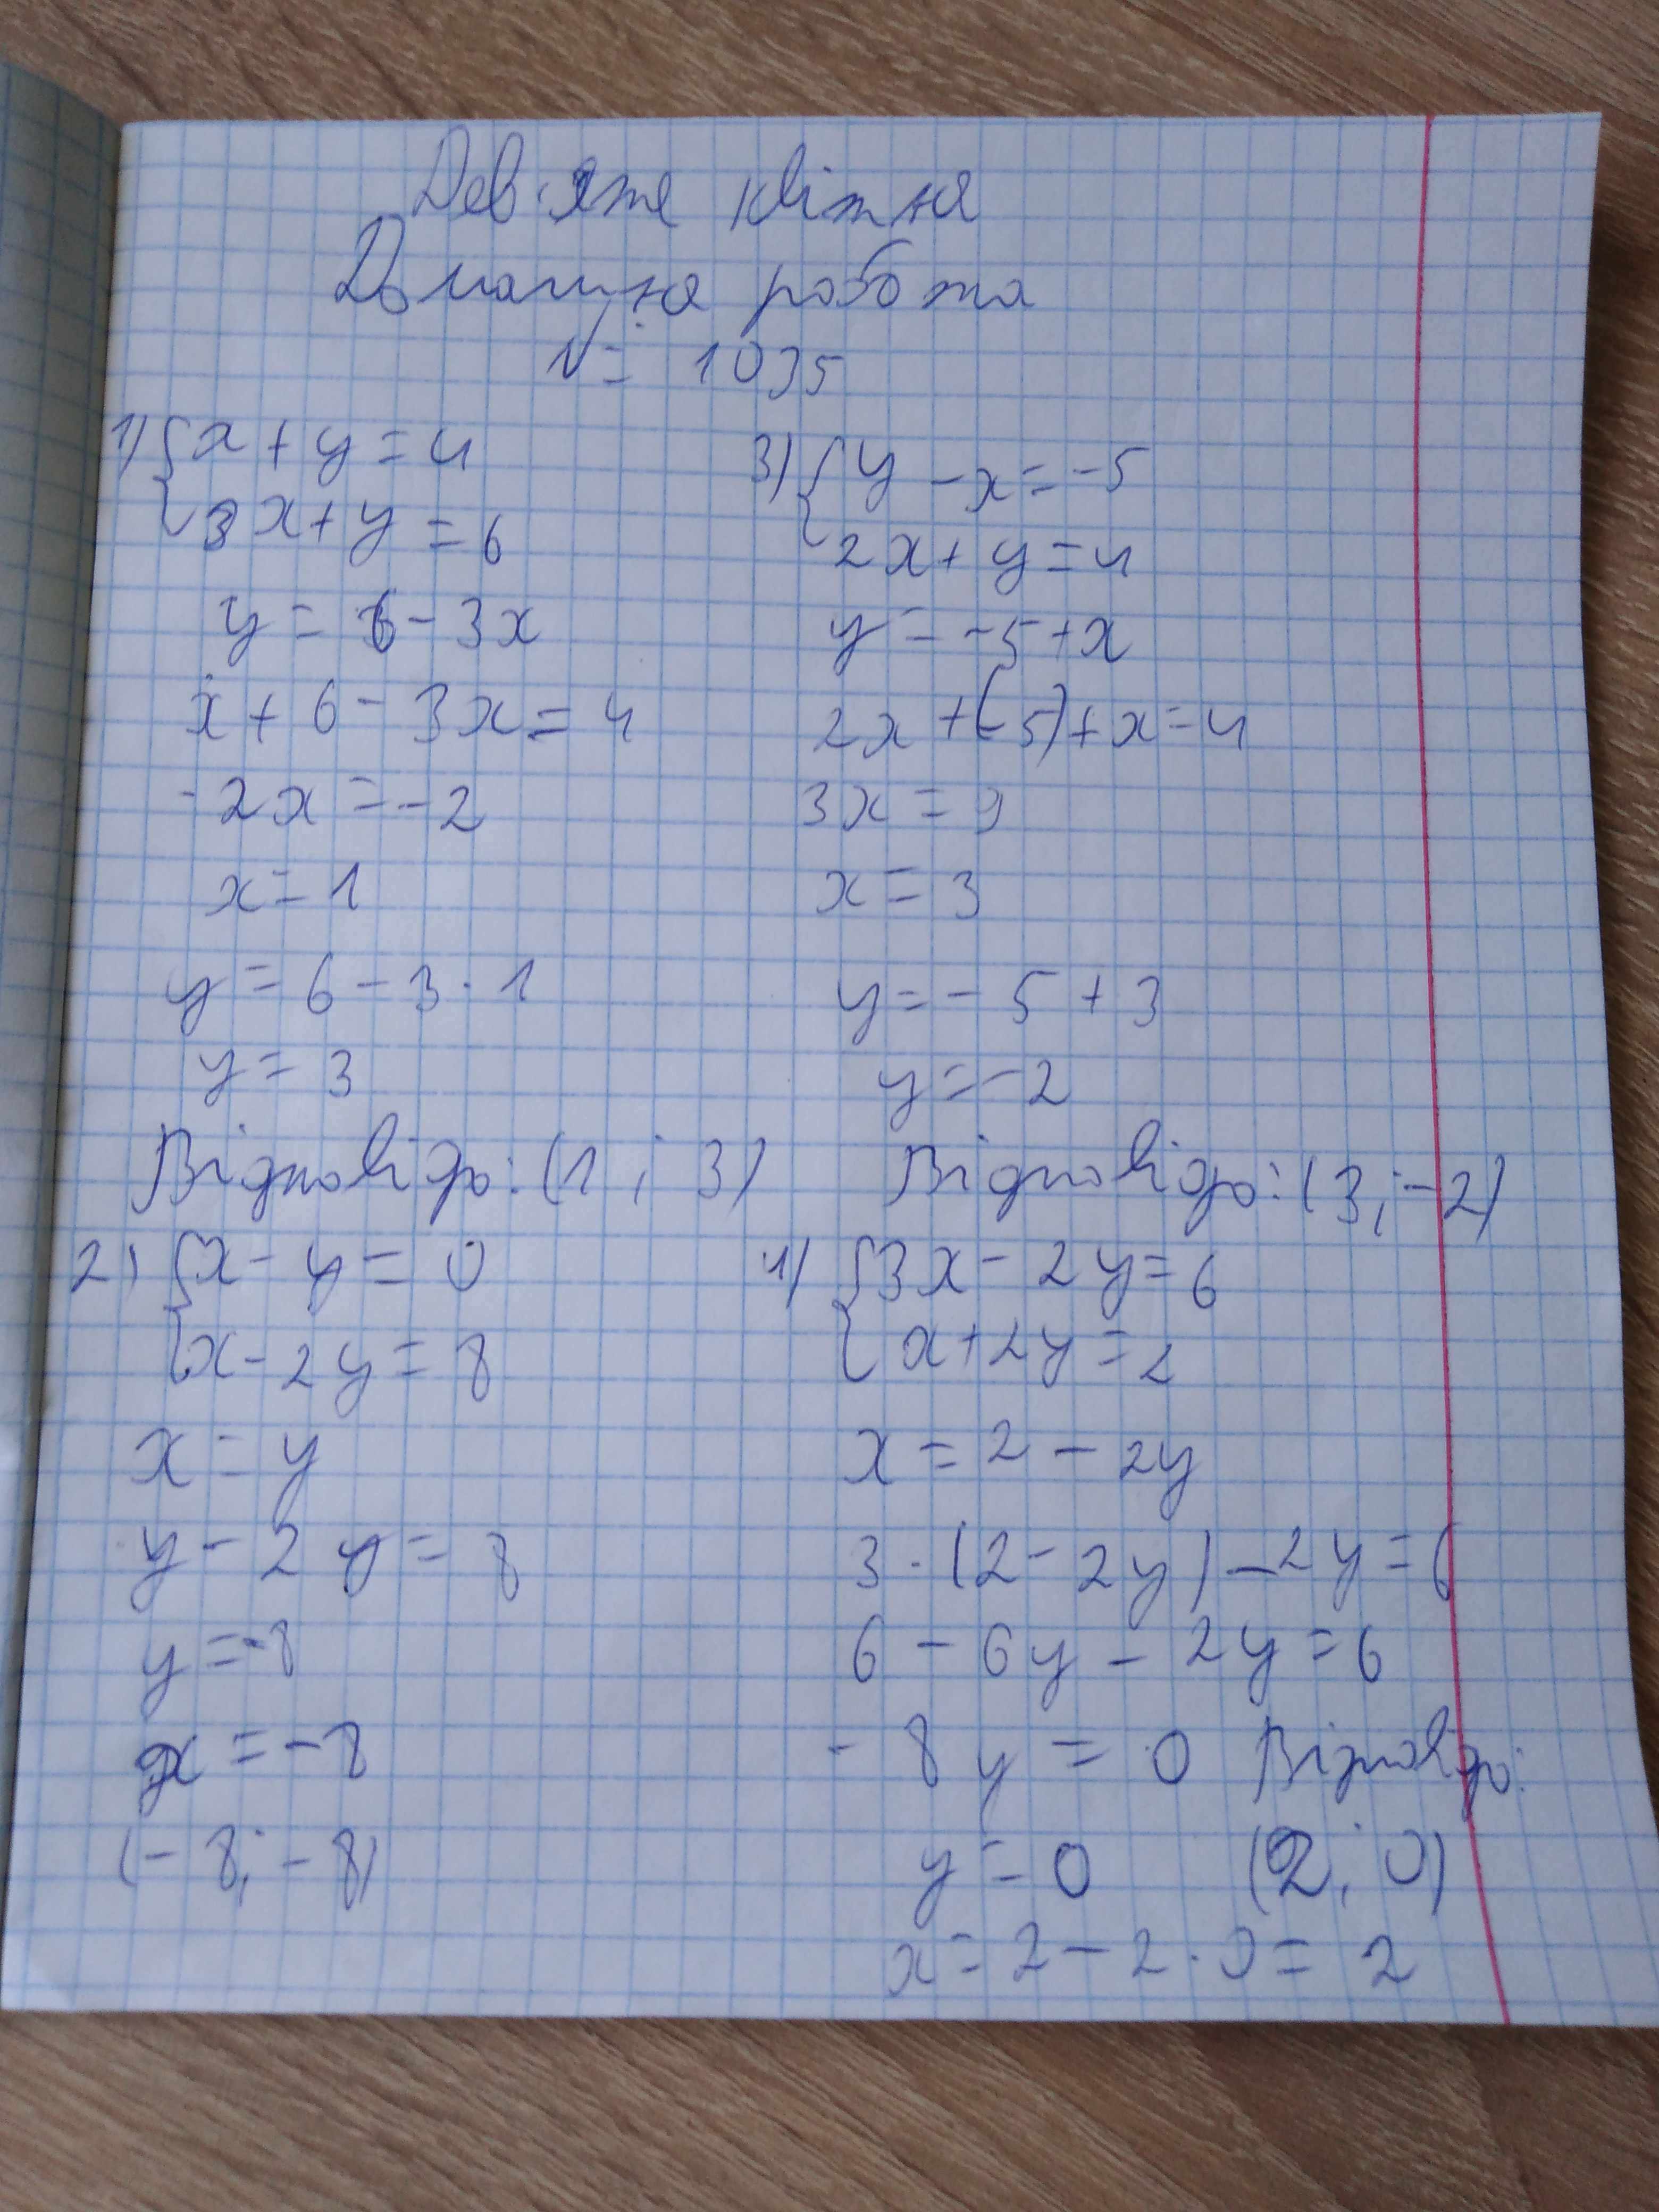 Дев'яте квітня
Домашня робота
№ 1035
1) {x + y = 4
3x + y = 6
y = 6 - 3x
x + 6 - 3x = 4
-2x = -2
x = 1
y = 6 - 3 · 1
y = 3
Відповідь: (1 ; 3)
2) {x - y = 0
x - 2y = 8
x = y
y - 2y = 8
y = -8
x = -8
(-8; -8)
3) {y - x = -5
2x + y = 4
y = -5 + x
2x + (-5) + x = 4
3x = 9
x = 3
y = -5 + 3
y = -2
Відповідь: (3; -2)
4) {3x - 2y = 6
x + 2y = 2
x = 2 - 2y
3 · (2 - 2y) - 2y = 6
6 - 6y - 2y = 6
-8y = 0
y = 0
x = 2 - 2 · 0 = 2
Відповідь:
(2; 0)